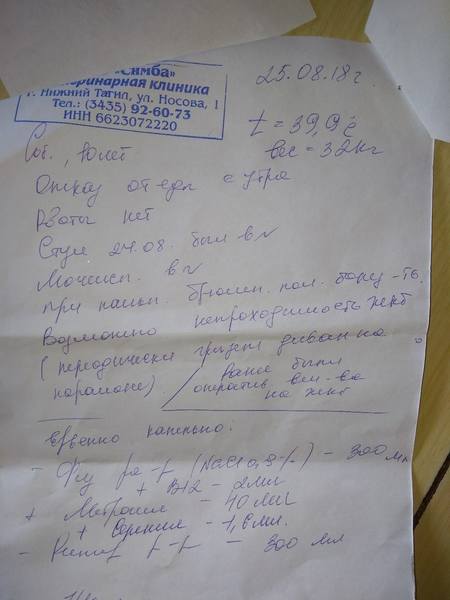 «Симба»
Ветеринарная клиника
г. Нижний Тагил, ул. Носова, 1
Тел.: (3435) 92-60-73
ИНН 6623072220
25.08.18г
t = 39,9 с
вес = 32кг
Соб., 10 лет
Отказ от еды с утра
Рвоты нет
Стул 24.08. был в N
Мочеисп. в N
при пальп. брюшн. пол.
Возможно непроходимость жкт
(периодически грызет диван на
поролоне)
Ранее были
оператив. вм-ва
на жкт
капельно:
- Физ р-р (NaCl 0,9%) - 300 мл
+ B12 - 2мл
+ Метрогил - 40 мл
+ - 1,6 мл.
- р-р - 300 мл